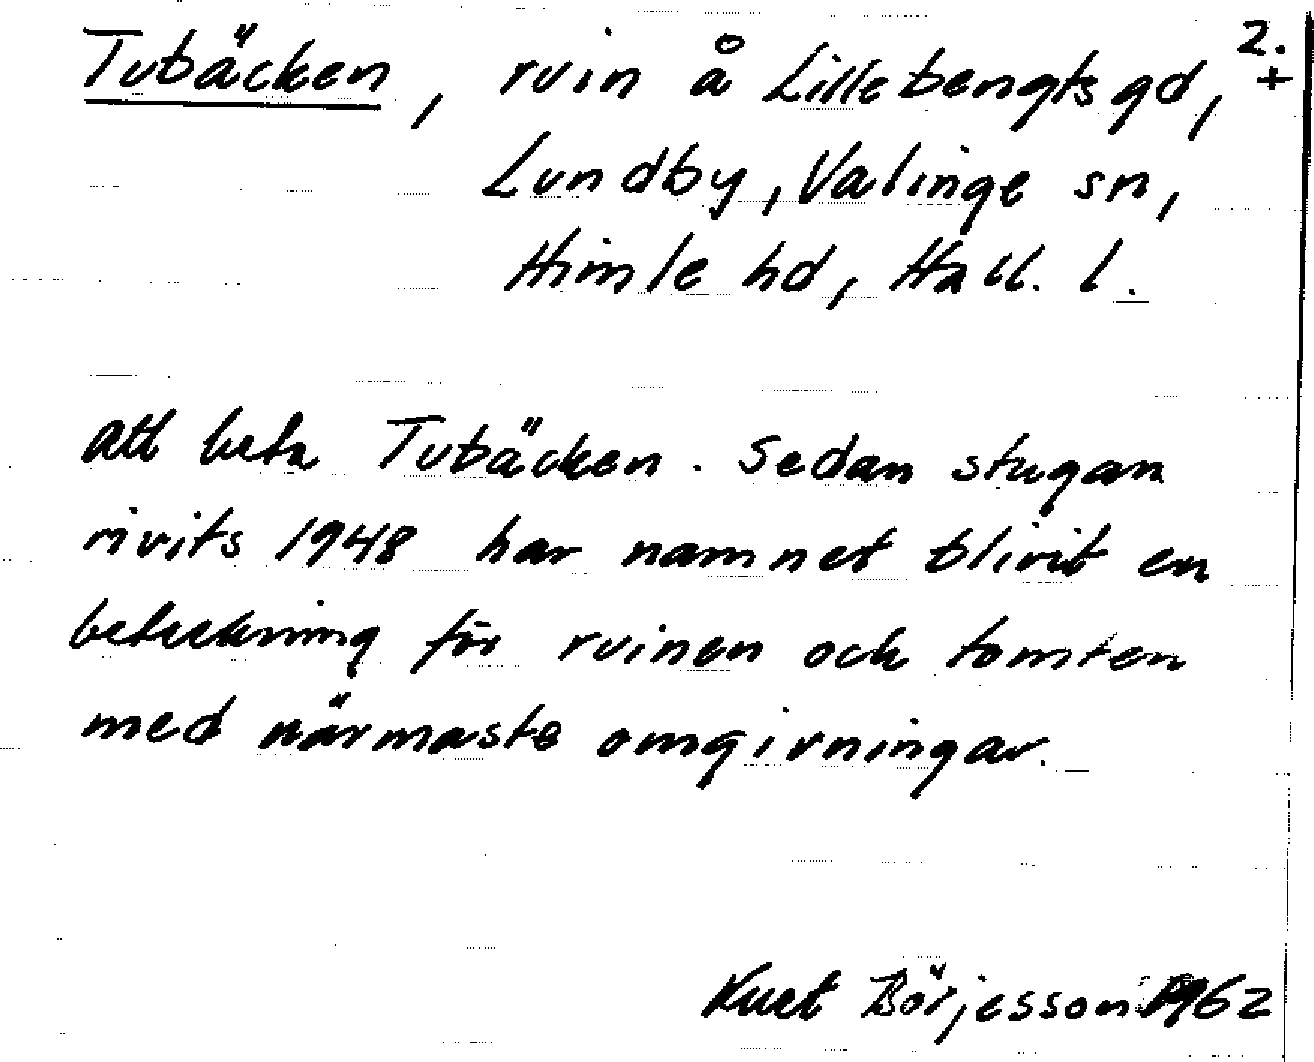 Tubäcken, ruin å Lillebengtsgd, 2. +
Lundby, Valinge sn,
Himle hd, Hall. l.
att heta Tubäcken. Sedan stugan
rivits 1948 har namnet blivit en
beteckning för ruinen och tomten
med närmaste omgivningar.
Kurt Börjesson 1962